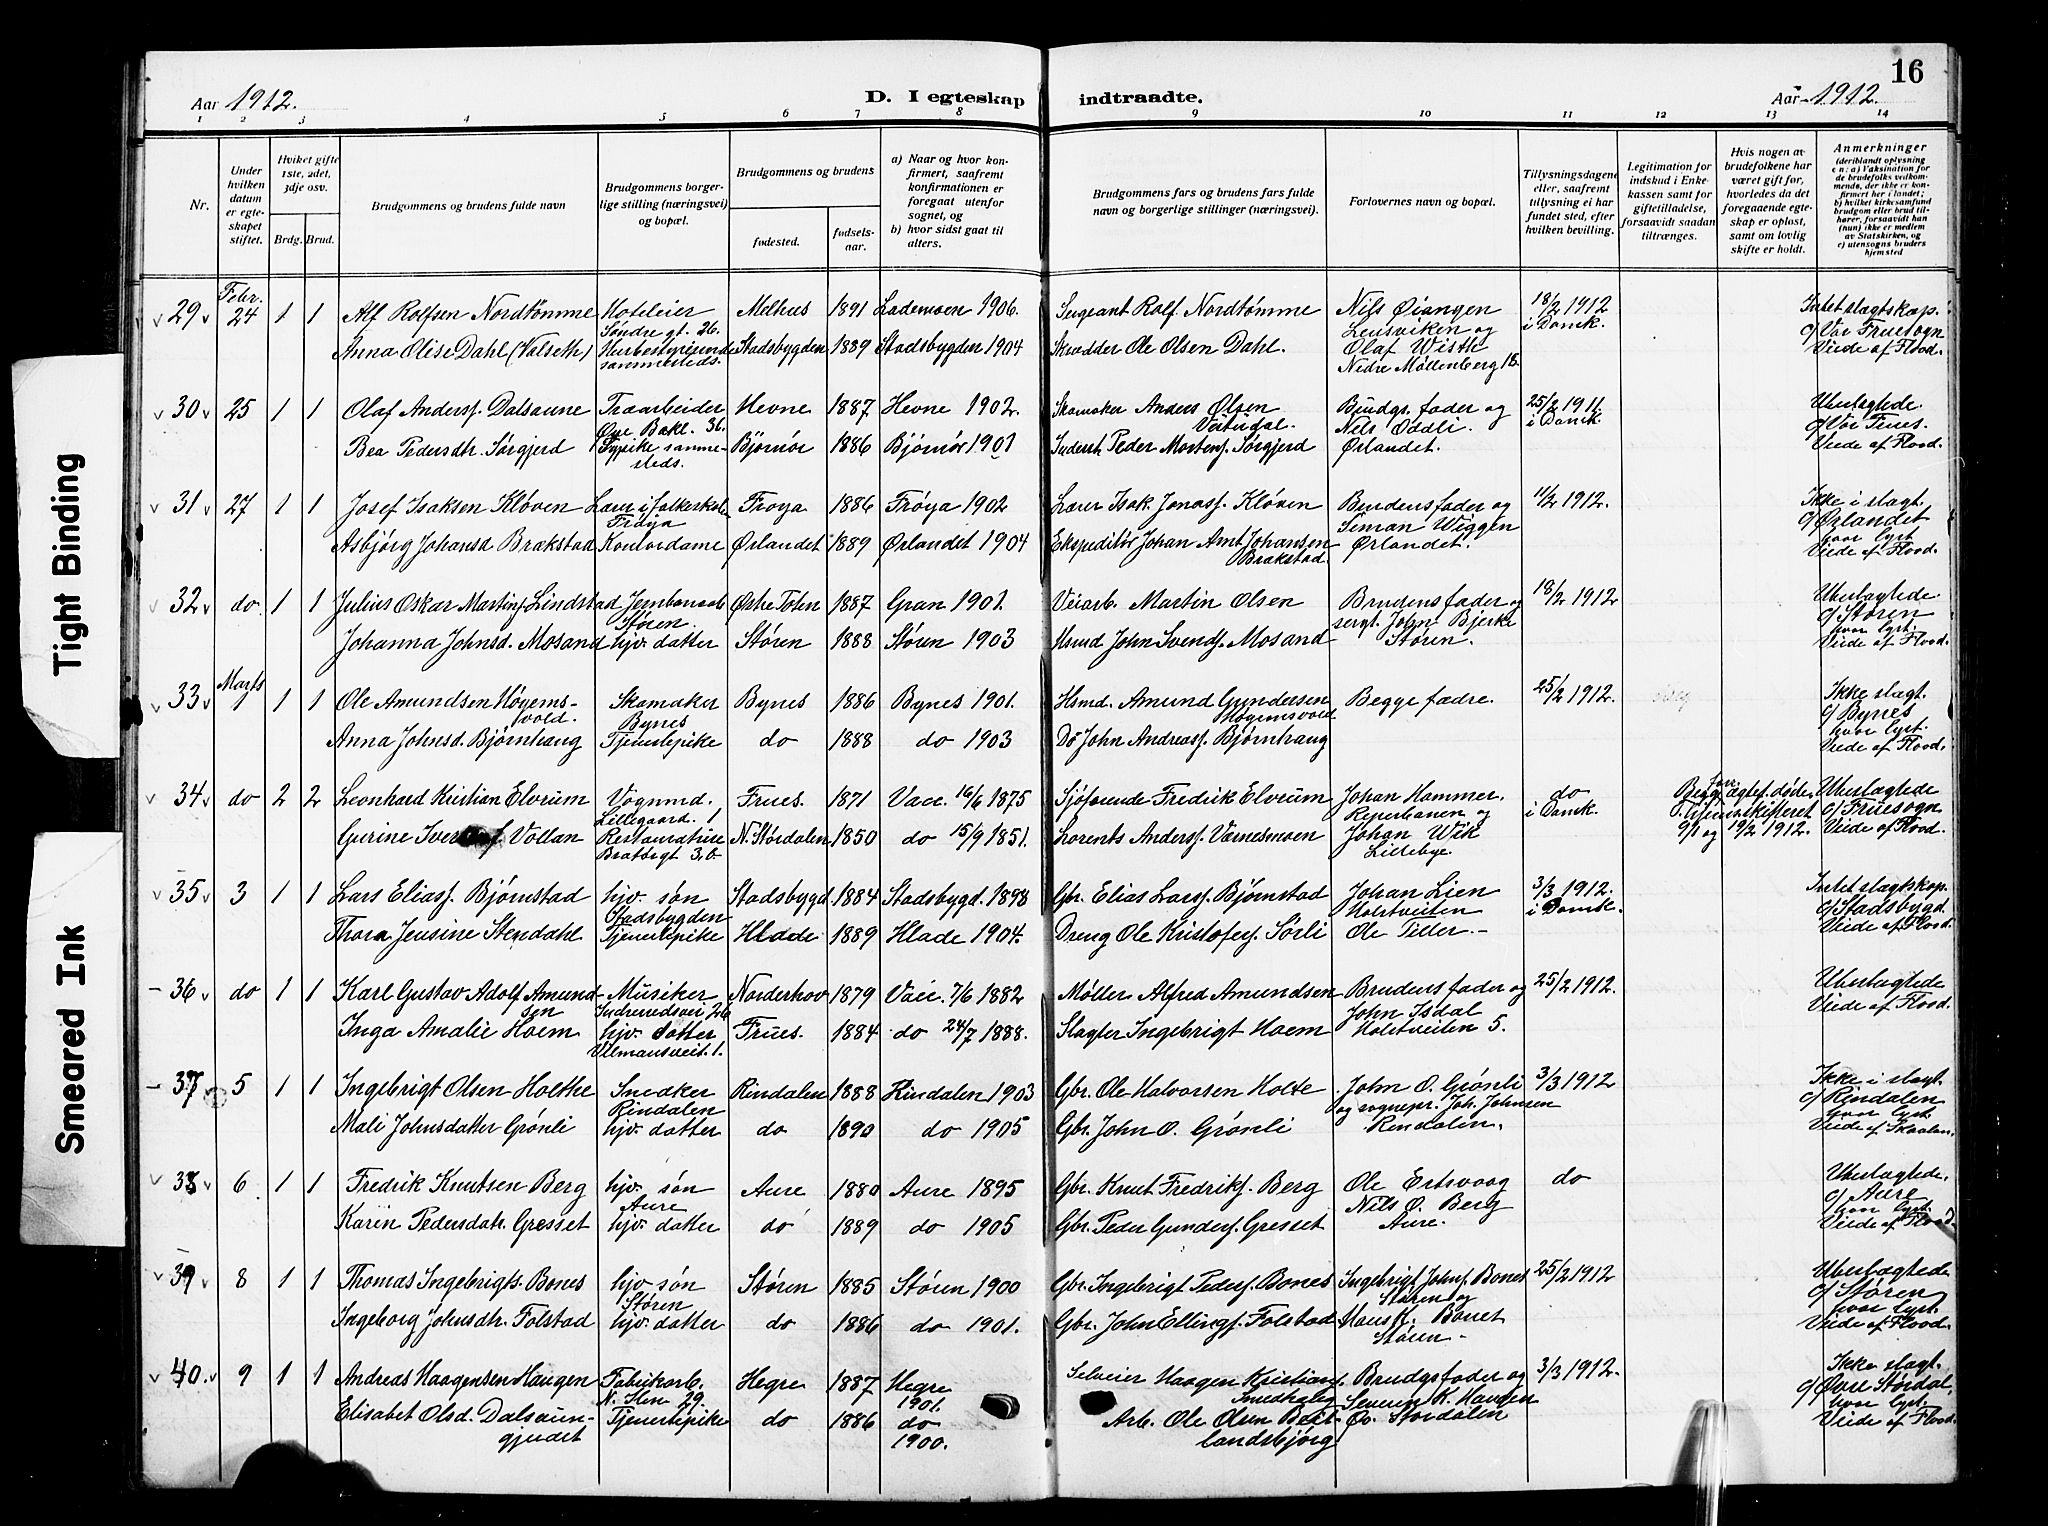 16
Aar 1912.
D. I egteskap indtraadte.
Aar 1912.
1 2 3 4 5 6 7 8 9 10 11 12 13 14
Nr.
Under hvilken datum er egteskapet stiftet.
Hvilket gifte 1ste, 2det, 3dje osv.
Brdg. Brud.
Brudgommens og brudens fulde navn
Brudgommens borgerlige stilling (næringsvei) og bopæl.
Brudgommens og brudens
fødested.
fødselsaar.
a) Naar og hvor konfirmert, saafremt konfirmationen er foregaat utenfor sognet, og
b) hvor sidst gaat til alters.
Brudgommens fars og brudens fars fulde navn og borgerlige stillinger (næringsvei).
Forlovernes navn og bopæl.
Tillysningsdagene eller, saafremt tillysning ei har fundet sted, efter hvilken bevilling.
Legitimation for indskud i Enkekassen samt for giftetilladelse, forsaavidt saadan tiltrænges.
Hvis nogen av brudefolkene har været gift før, hvorledes da det foregaaende egteskap er opløst, samt om lovlig skifte er holdt.
Anmerkninger
(deriblandt oplysning en: a) Vaksination for de brudefolks vedkommende, der ikke er konfirmert her i landet;
b) hvilket kirkesamfund brudgom eller brud tilhører, forsaavidt han (hun) ikke er medlem av Statskirken, og
c) utensogns bruders hjemsted
29 Febr. 24 1 1 Alf Rolfsen Nordtømme Hoteleier Søndre gt. 26. Melhus 1891 Lademoen 1906. Sergeant Rolf Nordtømme Nils Øiangen Lensviken og 18/2 1912 i Domk. Intet slagtskap.
Anna Olise Dahl (Valseth) Husbestyrerinde sammesteds. Stadsbygden 1889 Stadsbygden 1904 Skrædder Ole Olsen Dahl. Olaf Wisth Nedre Møllenberg 16. c/ Vor Fruesogn Viede af Flood.
30 25 1 1 Olaf Andersf. Dalsaune Træarbeider Øvre Bakl. 36. Hevne 1887 Hevne 1902. Skomaker Anders Olsen Brudgs. fader og 25/2 1911 i Domk. Ubeslægtede.
Bea Pedersdtr. Sørgjerd Typike sammesteds. Bjørnør 1886 Bjørnør 1901 Inderst Peder Mortensf. Sørgjerd Nils Oddli. Ørlandet. c/ Vor Frues. Viede af Flood.
31 27 1 1 Josef Isaksen Kløven Lærer i folkeskole Frøya Frøya 1886 Frøya 1902 Lærer Isak Jonasf. Kløven Brudens fader og 11/2 1912. Ikke i slagt.
Asbjørg Johansd. Brækstad Kontordame Ørlandet 1889 Ørlandet 1904 Ekspeditør Johan Arnt Johansen Brækstad. Simon Wiggen Ørlandet. c/ Ørlandet hvor lyst. Viede af Flood.
32 do 1 1 Julius Oskar Martinf. Lindstad Jernbanearb. Støren. Østre Toten 1887 Gran 1901. Veiarb. Martin Olsen Brudens fader og 18/2 1912 Ubeslægtede
Johanna Johnsd. Mosand hjv. datter Støren 1888 Støren 1903 Hsmd John Svendsf. Mosand sergt. John Bjerke Støren. c/ Støren hvor lyst. Viede af Flood.
33 Marts 1 1 1 Ole Amundsen Høyemsvold. Skomaker Bynes Bynes 1886 Bynes 1901. Hsmd. Amund Gundersen Høgemsvold Begge fædre. 25/2 1912. Ikke slagt.
Anna Johnsd. Bjørnhaug Tjenestepike do 1888 do 1903 Do John Andreasf. Bjørnhaug c/ Bynes hvor lyst. Viede af Flood.
34 do 2 2 Leonhard Kristian Elvrum Vognmd. Lillegaard. 1 Frues. 1871 Vacc. 16/6 1875 Sjøfarende Fredrik Elvrum Johan Hammer. Reperbanen og do i Domk. Begg. forr. ægtef. døde. skifteret 9/1 og 19/2 1912. Ubeslægtede
Gurine Vollan Restauratrice Bratørgt 3,b. N. Størdalen 1850 do 15/9 1851. Lorents Andersf. Værnesmoen Johan Wik Lillebye. c/ Fruesogn Viede af Flood.
35 3 1 1 Lars Eliasf. Bjørnstad hjv. søn Stadsbygden Stadsbygd 1884 Stadsbygd. 1898 Gbr. Elias Larsf. Bjørnstad Johan Lien Holstveiten 3/3 1912. i Domk. Intet slagtskap.
Thora Jensine Stendahl Tjenestepike Hlade 1889 Hlade 1904. Dreng Ole Kristofersf. Sørli Ole Tiller. c/ Stadsbygd. Viede af Flood.
36 do 1 1 Karl Gustav Adolf Amundsen Musiker Norderhov 1879 Vacc. 7/6 1882 Møller Alfred Amundsen Brudens fader og 25/2 1912. Ubeslægtede
Inga Amalie Hoem hjv. datter Ulmansveit. 1. Frues. 1884 do 24/7 1888. Slagter Ingebrigt Hoem John Isdal Holstveiten 5. Viede af Flood.
37 5 1 1 Ingebrigt Olsen Holthe Snedker Rindalen Rindalen 1888 Rindalen 1903 Gbr. Ole Halvorsen Holte John O. Grønli 3/3 1912 Ikke i slagt.
Mali Johnsdatter Grønli hjv. datter do 1890 do 1905 Gbr. John O. Grønli og sognepr. Joh. Johnsen Rindalen. c/ Rindalen hvor lyst. Viede af Skaalan.
38 6 1 1 Fredrik Knutsen Berg hjv. søn Aure Aure 1880 Aure 1895 Gbr. Knut Fredriksf. Berg Ole Ertsvaag do Ubeslægtede.
Karen Pedersdatr. Gresset hjv. datter do 1889 do 1905 Gbr. Peder Gundersf. Gresset Nils O. Berg Aure. c/ Aure hvor lyst. Viede af Flood
39 8 1 1 Thomas Ingebrigts. Bones hjv søn Støren Støren 1885 Støren 1900 Gbr. Ingebrigt Pedersf. Bones Ingebrigt Johnsf. Bones Støren og 25/2 1912 Ubeslægtede
Ingeborg Johnsdtr. Folstad hjv. datter do 1886 do 1901. Gbr. John Ellingsf. Folstad Bones Støren c/ Støren hvor lyst. Viede af Flood.
40. 9 1 1 Andreas Haagensen Haugen Fabrikarb. N. Ilen 29. Hegre 1887 Hegre 1901. Selveier Haagen Kristiansf. Brudgs fader og 3/3 1912. Ikke slagt.
Elisabet Olsd. Dalsaungjerdet Tjenestepike do 1886 do 1900. Arb. Ole Olsen Beitlandsbjørg Severin K. Haugen Øv. Størdalen c/ Øvre Størdal, hvor lyst. Viede af Flood.
Tight Binding
Smeared Ink